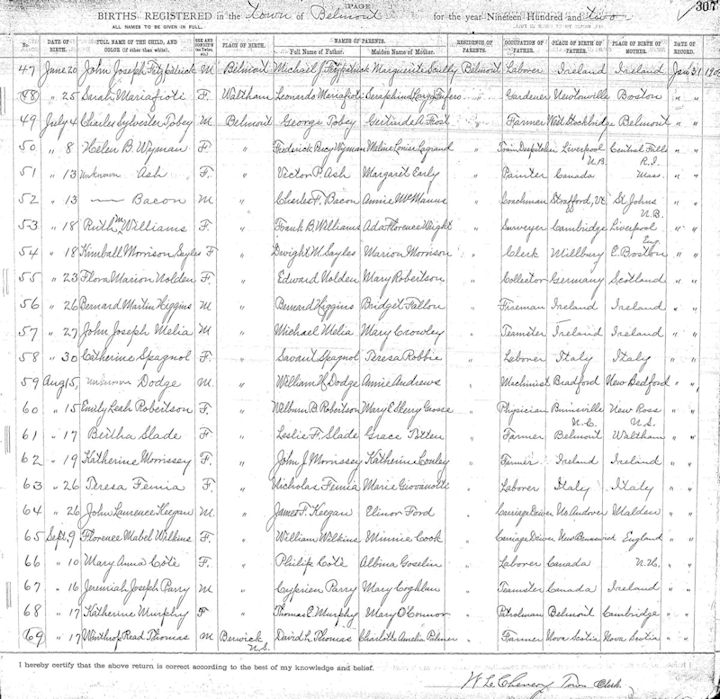 PAGE
307
BIRTHS REGISTERED in the Town of Belmont for the year Nineteen Hundred and two
ALL NAMES TO BE GIVEN IN FULL.
NAMES OF PARENTS.
No. DATE OF BIRTH. FULL NAME OF THE CHILD, AND COLOR (if other than white). SEX AND CONDITION (as Twins, &c.) PLACE OF BIRTH. Full Name of Father. Maiden Name of Mother. RESIDENCE OF PARENTS. OCCUPATION OF FATHER. PLACE OF BIRTH OF FATHER. PLACE OF BIRTH OF MOTHER. DATE OF RECORD.
47 June 20 John Joseph Fitzpatrick M Belmont Michael J. Fitzpatrick Marguerite Scully Belmont Laborer Ireland Ireland Jan 31
48 " 25 Sarah Mariafioti F. Waltham Leonardo Mariafioti " Gardener Newtonville Boston " "
49 July 4 Charles Sylvester Tobey M Belmont George Tobey Gertrude A Frost " Farmer West Stockbridge Belmont " "
50 " 8 Helen B. Wyman F. " Frederick Percy Wyman Louise Legrand " Train Despatcher Liverpool N.B. Central Falls R.I. " "
51 " 13 Unknown Ash F. " Victor P. Ash Margaret Early " Painter Canada Mass. " "
52 " 13 — Bacon M " Charles F. Bacon Annie McManus " Coachman Strafford, Vt. St Johns N.B. " "
53 " 18 Ruth M Williams F. " Frank B. Williams Ada Florence Wright " Surveyer Cambridge Liverpool Eng. " "
54 " 18 Kimball Morrison Sayles F " Dwight M. Sayles Marion Morrison " Clerk Millbury E. Boston " "
55 " 23 Flora Marion Nolden F. " Edward Nolden Mary Robertson " Collector Germany Scotland " "
56 " 26 Bernard Martin Higgins M " Bernard Higgins Bridget Fallon " Fireman Ireland Ireland " "
57 " 27 John Joseph Melia M " Michael Melia Mary Crowley " Teamster Ireland Ireland " "
58 " 30 Catherine Spagnol F. " Savant Spagnol Teresa Robbie " Laborer Italy Italy " "
59 Aug 5 unknown Dodge M. " William H. Dodge Annie Andrews " Machinist Bradford New Bedford " "
60 " 15 Emily Leah Robertson F. " Wilburn B. Robertson " Physician Burnsville N.C. New Ross N.S. " "
61 " 17 Bertha Slade F. " Leslie F. Slade Grace Totten " Farmer Belmont Waltham " "
62 " 19 Katherine Morrissey F. " John J. Morrissey Katherine Conley " Farmer Ireland Ireland " "
63 " 26 Teresa Femia F. " Nicholas Femia Marie " Laborer Italy Italy " "
64 " 26 John Laurence Keegan M. " James F. Keegan Elinor Ford " Carriage Driver No. Andover Malden " "
65 Sept. 9 Florence Mabel Wilkins F. " William Wilkins Minnie Cook " Carriage Driver New Brunswick England " "
66 " 10 Mary Anna Coté F. " Philip Coté Albina Goselin " Laborer Canada N.H. " "
67 " 16 Jeremiah Joseph Parry M " Cyprien Parry Mary Coghlan " Teamster Canada Ireland " "
68 " 17 Katherine Murphy F " Thomas E. Murphy Mary O'Connor " Patrolman Belmont Cambridge " "
69 " 17 Winthrop Read Thomas M Berwick N.S. David L. Thomas Charlotte Amelia Palmer " Farmer Nova Scotia Nova Scotia " "
I hereby certify that the above return is correct according to the best of my knowledge and belief.
W L Chenery Town Clerk.